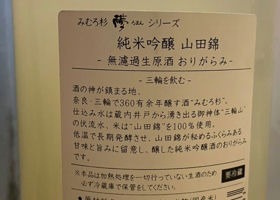 みむろ杉 シリーズ
純米吟醸 山田錦
- 無濾過生原酒 おりがらみ -
- 三輪を飲む -
酒の神が鎮まる地、
奈良・三輪で360有余年醸す酒“みむろ杉”。
仕込み水は蔵内井戸から湧き出る御神体“三輪山”
の伏流水、米は“山田錦”を100％使用。
低温で長期発酵させ、山田錦が秘めるふくらみある
甘味と旨みに留意し、醸した純米吟醸酒のおりがらみ
です。
※本品は加熱処理を一切行っていない生酒のため
必ず冷蔵庫で保管してください。
要冷蔵